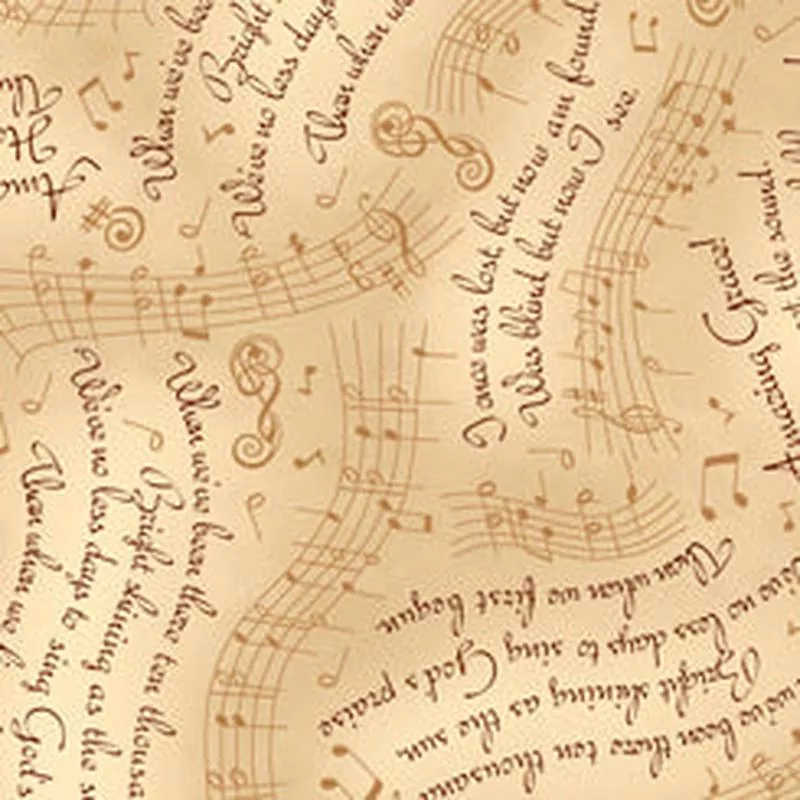 When we've bee
Bright
We've no less days
Than when we
I once was lost, but now am found,
Was blind but now I see.
Amazing Grace!
When we've been there ten thousa
Bright shining as the s
We've no less days to sing God's
Than when we fi
we've been there ten thousand
Bright shining as the sun,
We've no less days to sing God's praise
Than when we first begun.